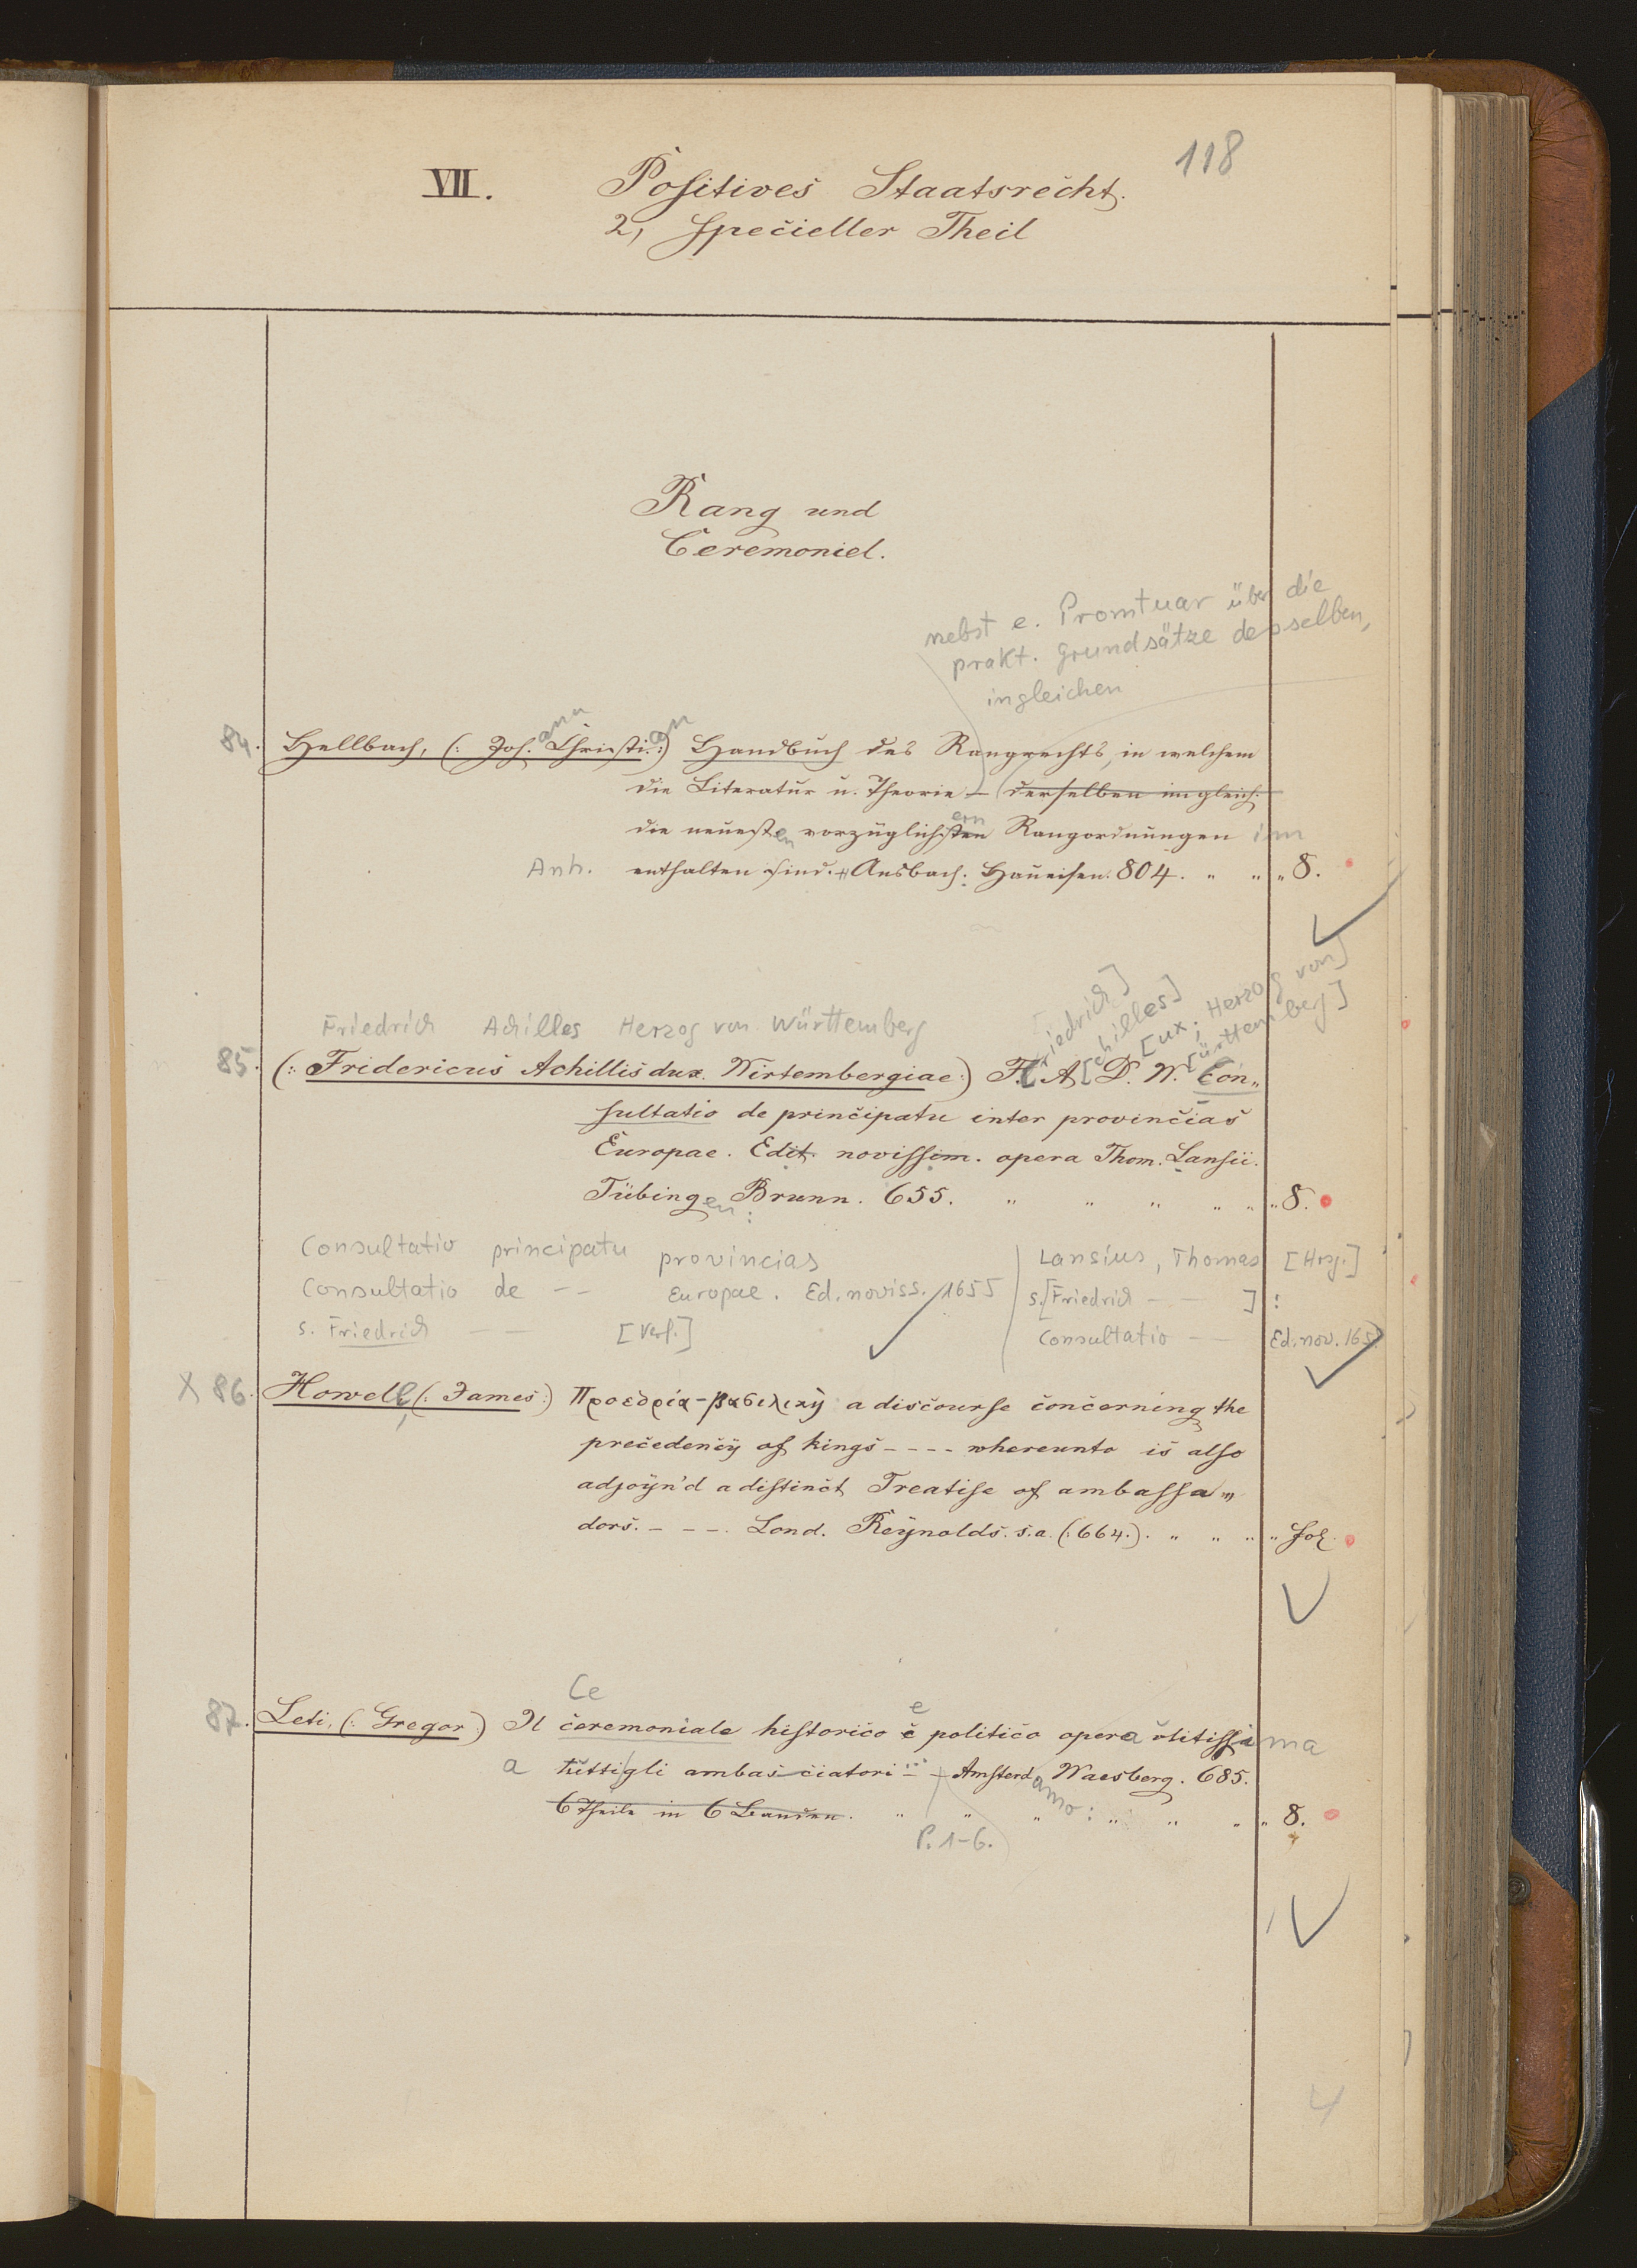 118
VII. Positives Staatsrecht.
2, specieller Theil
Rang und
Ceremoniel.
nebst e. Promtuar über die
prakt. Grundsätze desselben,
ingleichen
84. Hellbach, (: Joh.ann Christi.an :) Handbuch des Rangrechts, in welchem
die Literatur u. Theorie – derselben imgleich.
die neuesten vorzüglichsten ern Rangordnungen im
Anh. enthalten sind. Ansbach: Haueisen. 804. " " " 8.
riedrich] chilles] [ux, Herzog von] [ürttemberg]
Friedrich Achilles Herzog von Württemberg
85. (: Fridericus Achillis dux. Wirtembergiae :) F.[ A[ D. W. Con„
sultatio de principatu inter provincias
Europae. Edit. novissim. opera Thom. Lansii.
Tübingen: Brunn. 655. " " " " " " 8.
Consultatio principatu provincias
Consultatio de –– Europae. Ed. noviss. 1655
s. Friedrich –– [Verf.]
Lansius, Thomas [Hrsg.]
s. [Friedrich –– ] :
Consultatio –– Ed. nov. 165
X 86. Howell, (: James :) Προεδρία-βασιλικὴ a discourse concerning the
precedency of kings - - - - whereunto is also
adjoyn'd a distinct Treatise of ambassa„
dors. - - - Lond. Reynolds. s.a. (:664.). " " " " fol.
Ce e
87. Leti, (: Gregor :) Il ceremoniale historico è politico opera utitissima
a tutti gli ambasciatori – Amsterdamo: Waesberg. 685.
6 Theile in 6 Bänden. " " " " " " " 8.
P. 1-6.
4